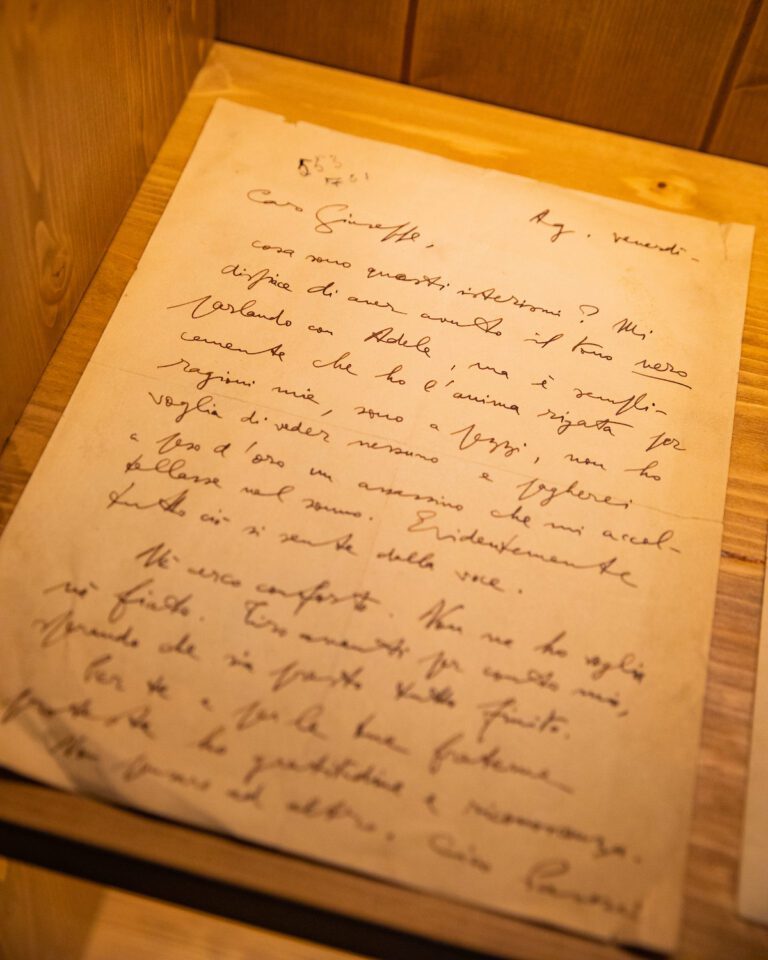 Caro Giuseppe,
Ag. venerdì-
cosa sono questi isterismi? Mi
dispiace di aver avuto il tono nero
parlando con Adele, ma è sempli-
cemente che ho l'anima rigata per
ragioni mie, sono a pezzi, non ho
voglia di veder nessuno e pagherei
a peso d'oro un assassino che mi accol-
tellasse nel sonno. Evidentemente
tutto ciò si sente dalla voce.
Né cerco conforto. Non ne ho voglia
né fiato. Tiro avanti per conto mio,
sperando che sia presto tutto finito.
Per te e per le tue fraterne
proteste ho gratitudine e riconoscenza.
Non penso ad altro. Ciao Pavese